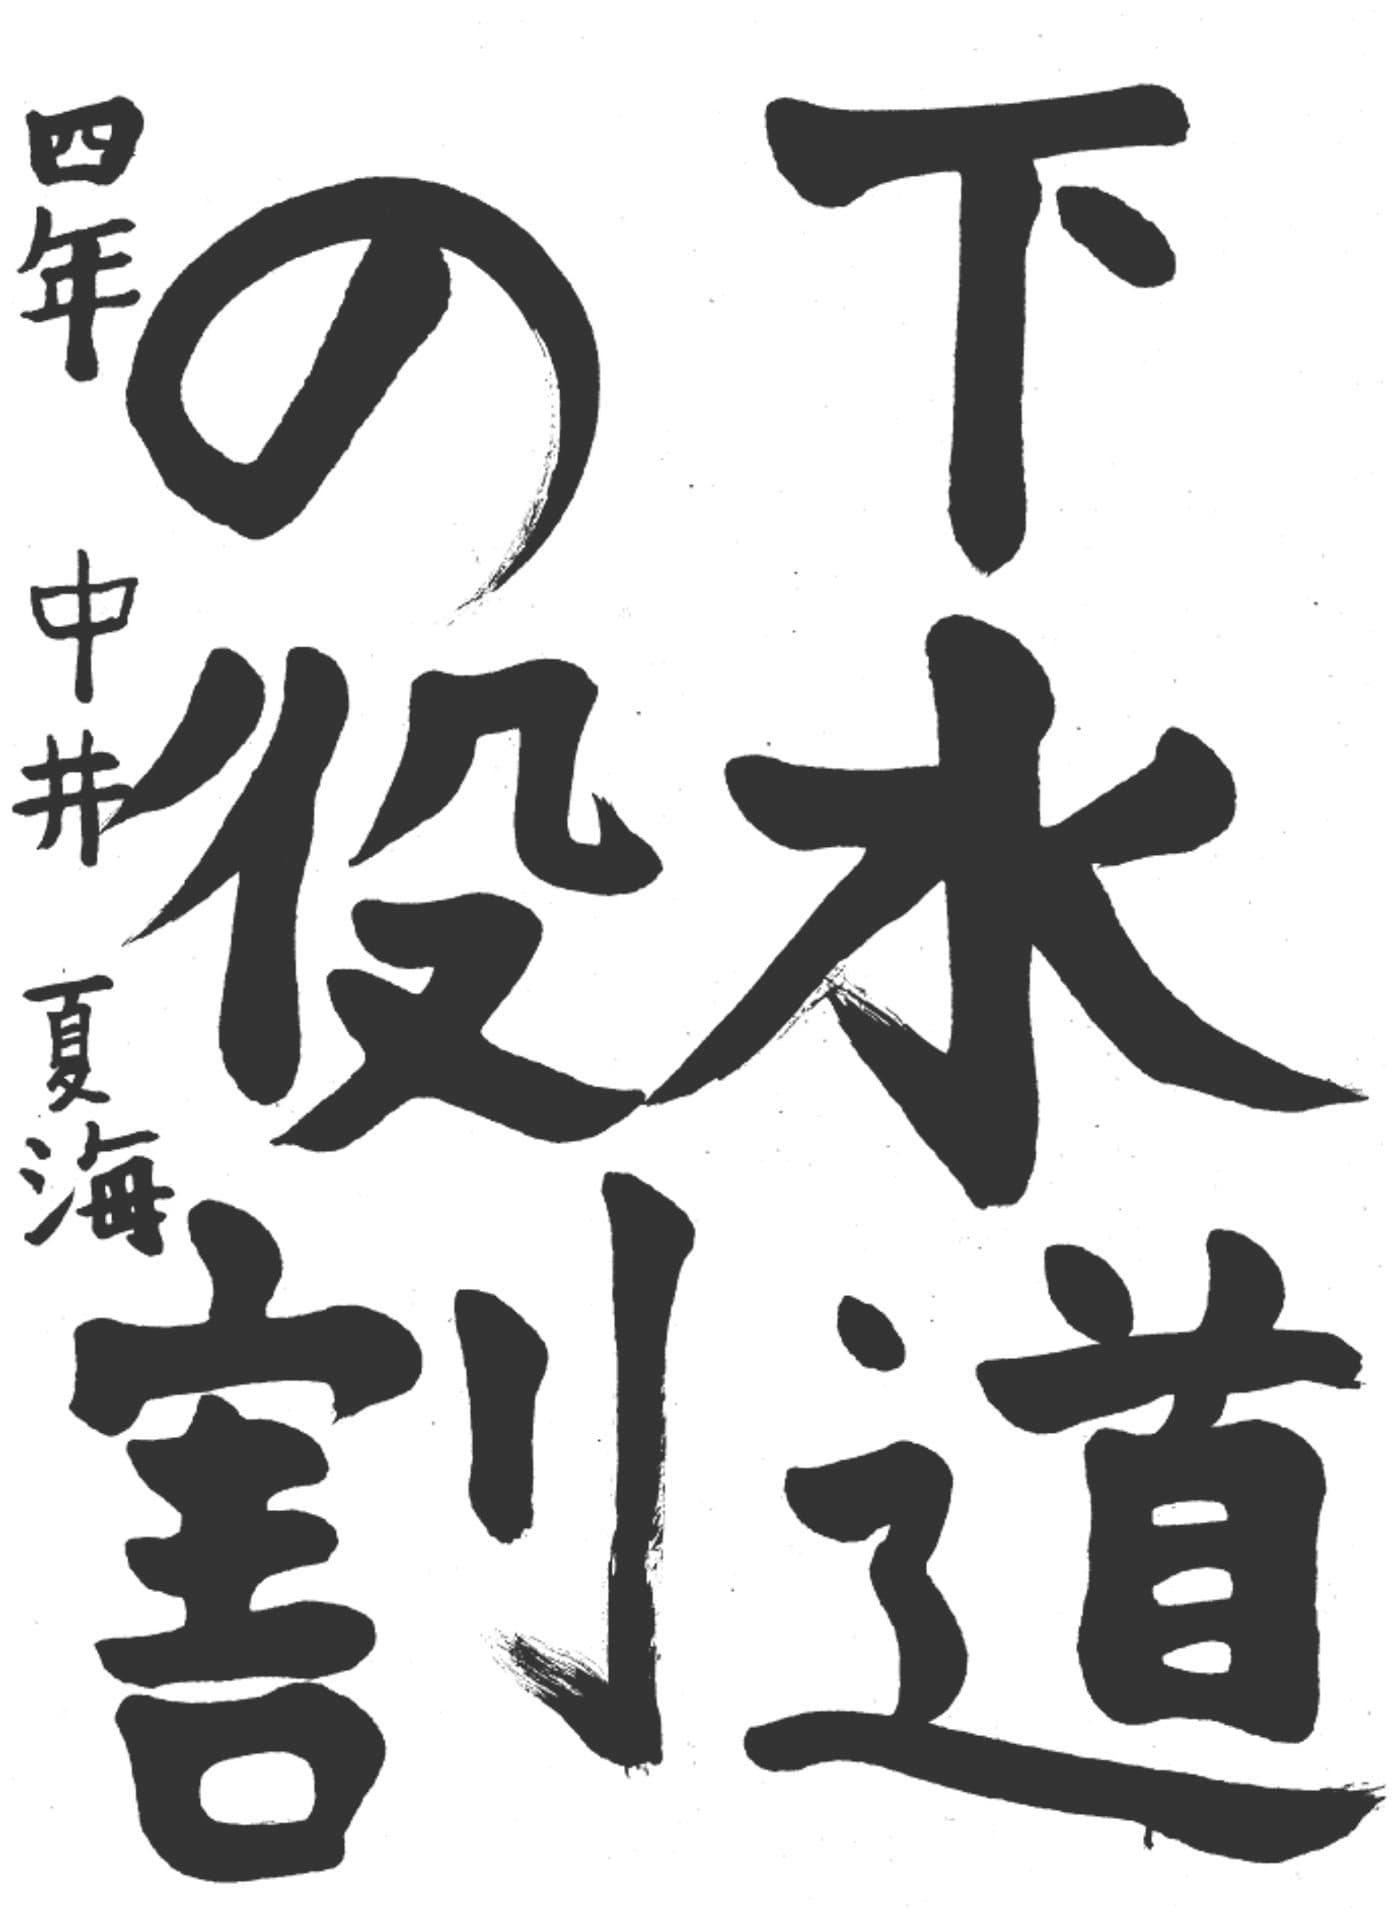 下水道
の役割
四年 中井 夏海